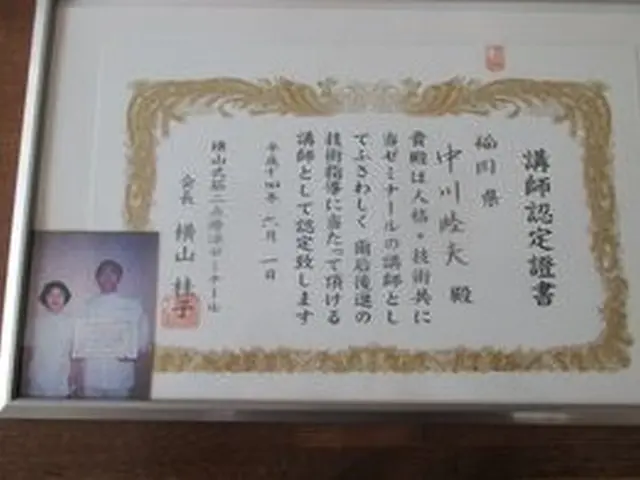 講師認定證書
福岡県
中川睦夫 殿
貴殿は人格・技術共に
当ゼミナールの講師とし
てふさわしく 爾后後進の
技術指導に当たって頂ける
講師として認定致します
平成十四年 六月 一日
横山式筋二点療法ゼミナール
会長 横山 桂子